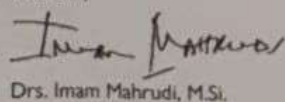 Imam Mahrudi
Drs. Imam Mahrudi, M.Si.